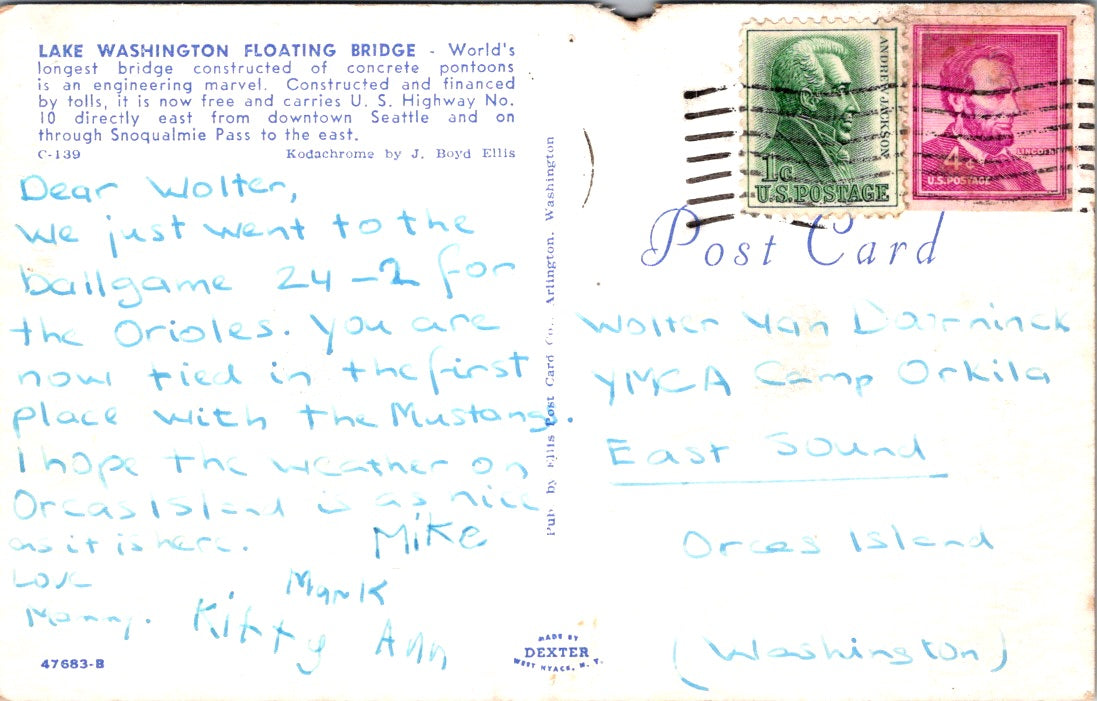 LAKE WASHINGTON FLOATING BRIDGE - World's
longest bridge constructed of concrete pontoons
is an engineering marvel. Constructed and financed
by tolls, it is now free and carries U. S. Highway No.
10 directly east from downtown Seattle and on
through Snoqualmie Pass to the east.
C-139 Kodachrome by J. Boyd Ellis
Dear Wolter,
we just went to the
ballgame 24-2 for
the Orioles. You are
now tied in the first
place with the Mustangs.
I hope the weather on
Orcas Island is as nice
as it is here.
Love
Mommy.
Mike
Mark
Kitty Ann
47683-B
Pub. by Ellis Post Card Co., Arlington, Washington
MADE BY
DEXTER
WEST NYACK, N. Y.
ANDREW JACKSON
1c
U.S. POSTAGE
LINCOLN
4c
U.S. POSTAGE
Post Card
Wolter Van
YMCA Camp Orkila
East Sound
Orcas Island
(Washington)